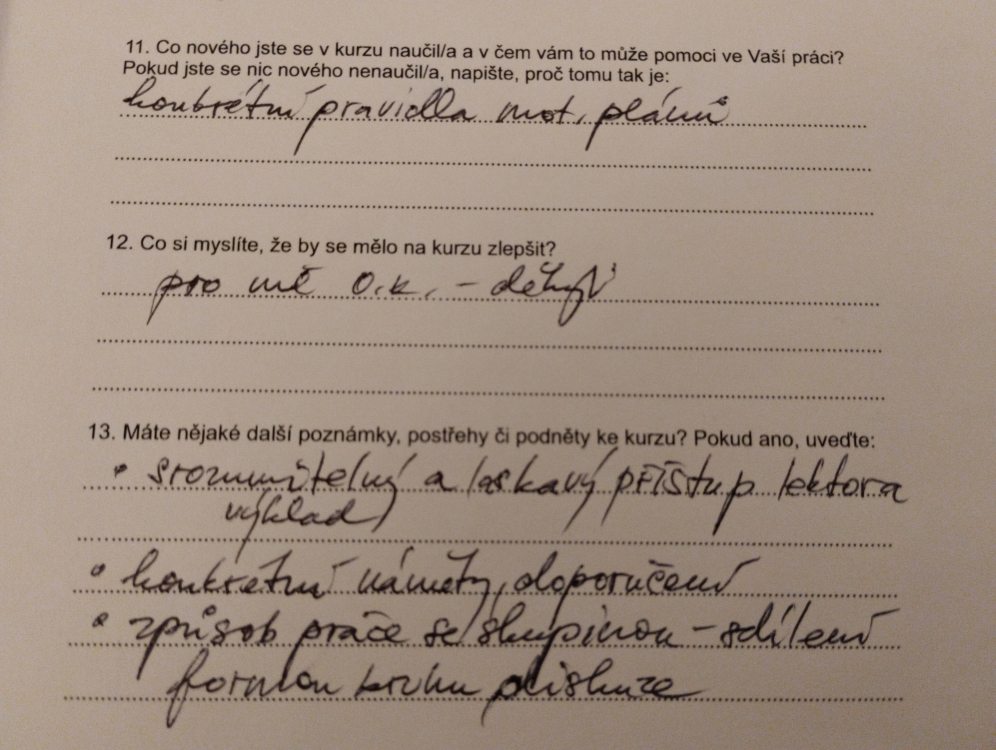 11. Co nového jste se v kurzu naučil/a a v čem vám to může pomoci ve Vaší práci?
Pokud jste se nic nového nenaučil/a, napište, proč tomu tak je:
konkrétní pravidla mot. plánů
12. Co si myslíte, že by se mělo na kurzu zlepšit?
pro mě o.k. –
13. Máte nějaké další poznámky, postřehy či podněty ke kurzu? Pokud ano, uveďte:
• srozumitelný a laskavý přístup lektora
výklad
• konkrétní náměty, doporučení
• způsob práce se skupinou – sdílení
formou kruhu diskuze